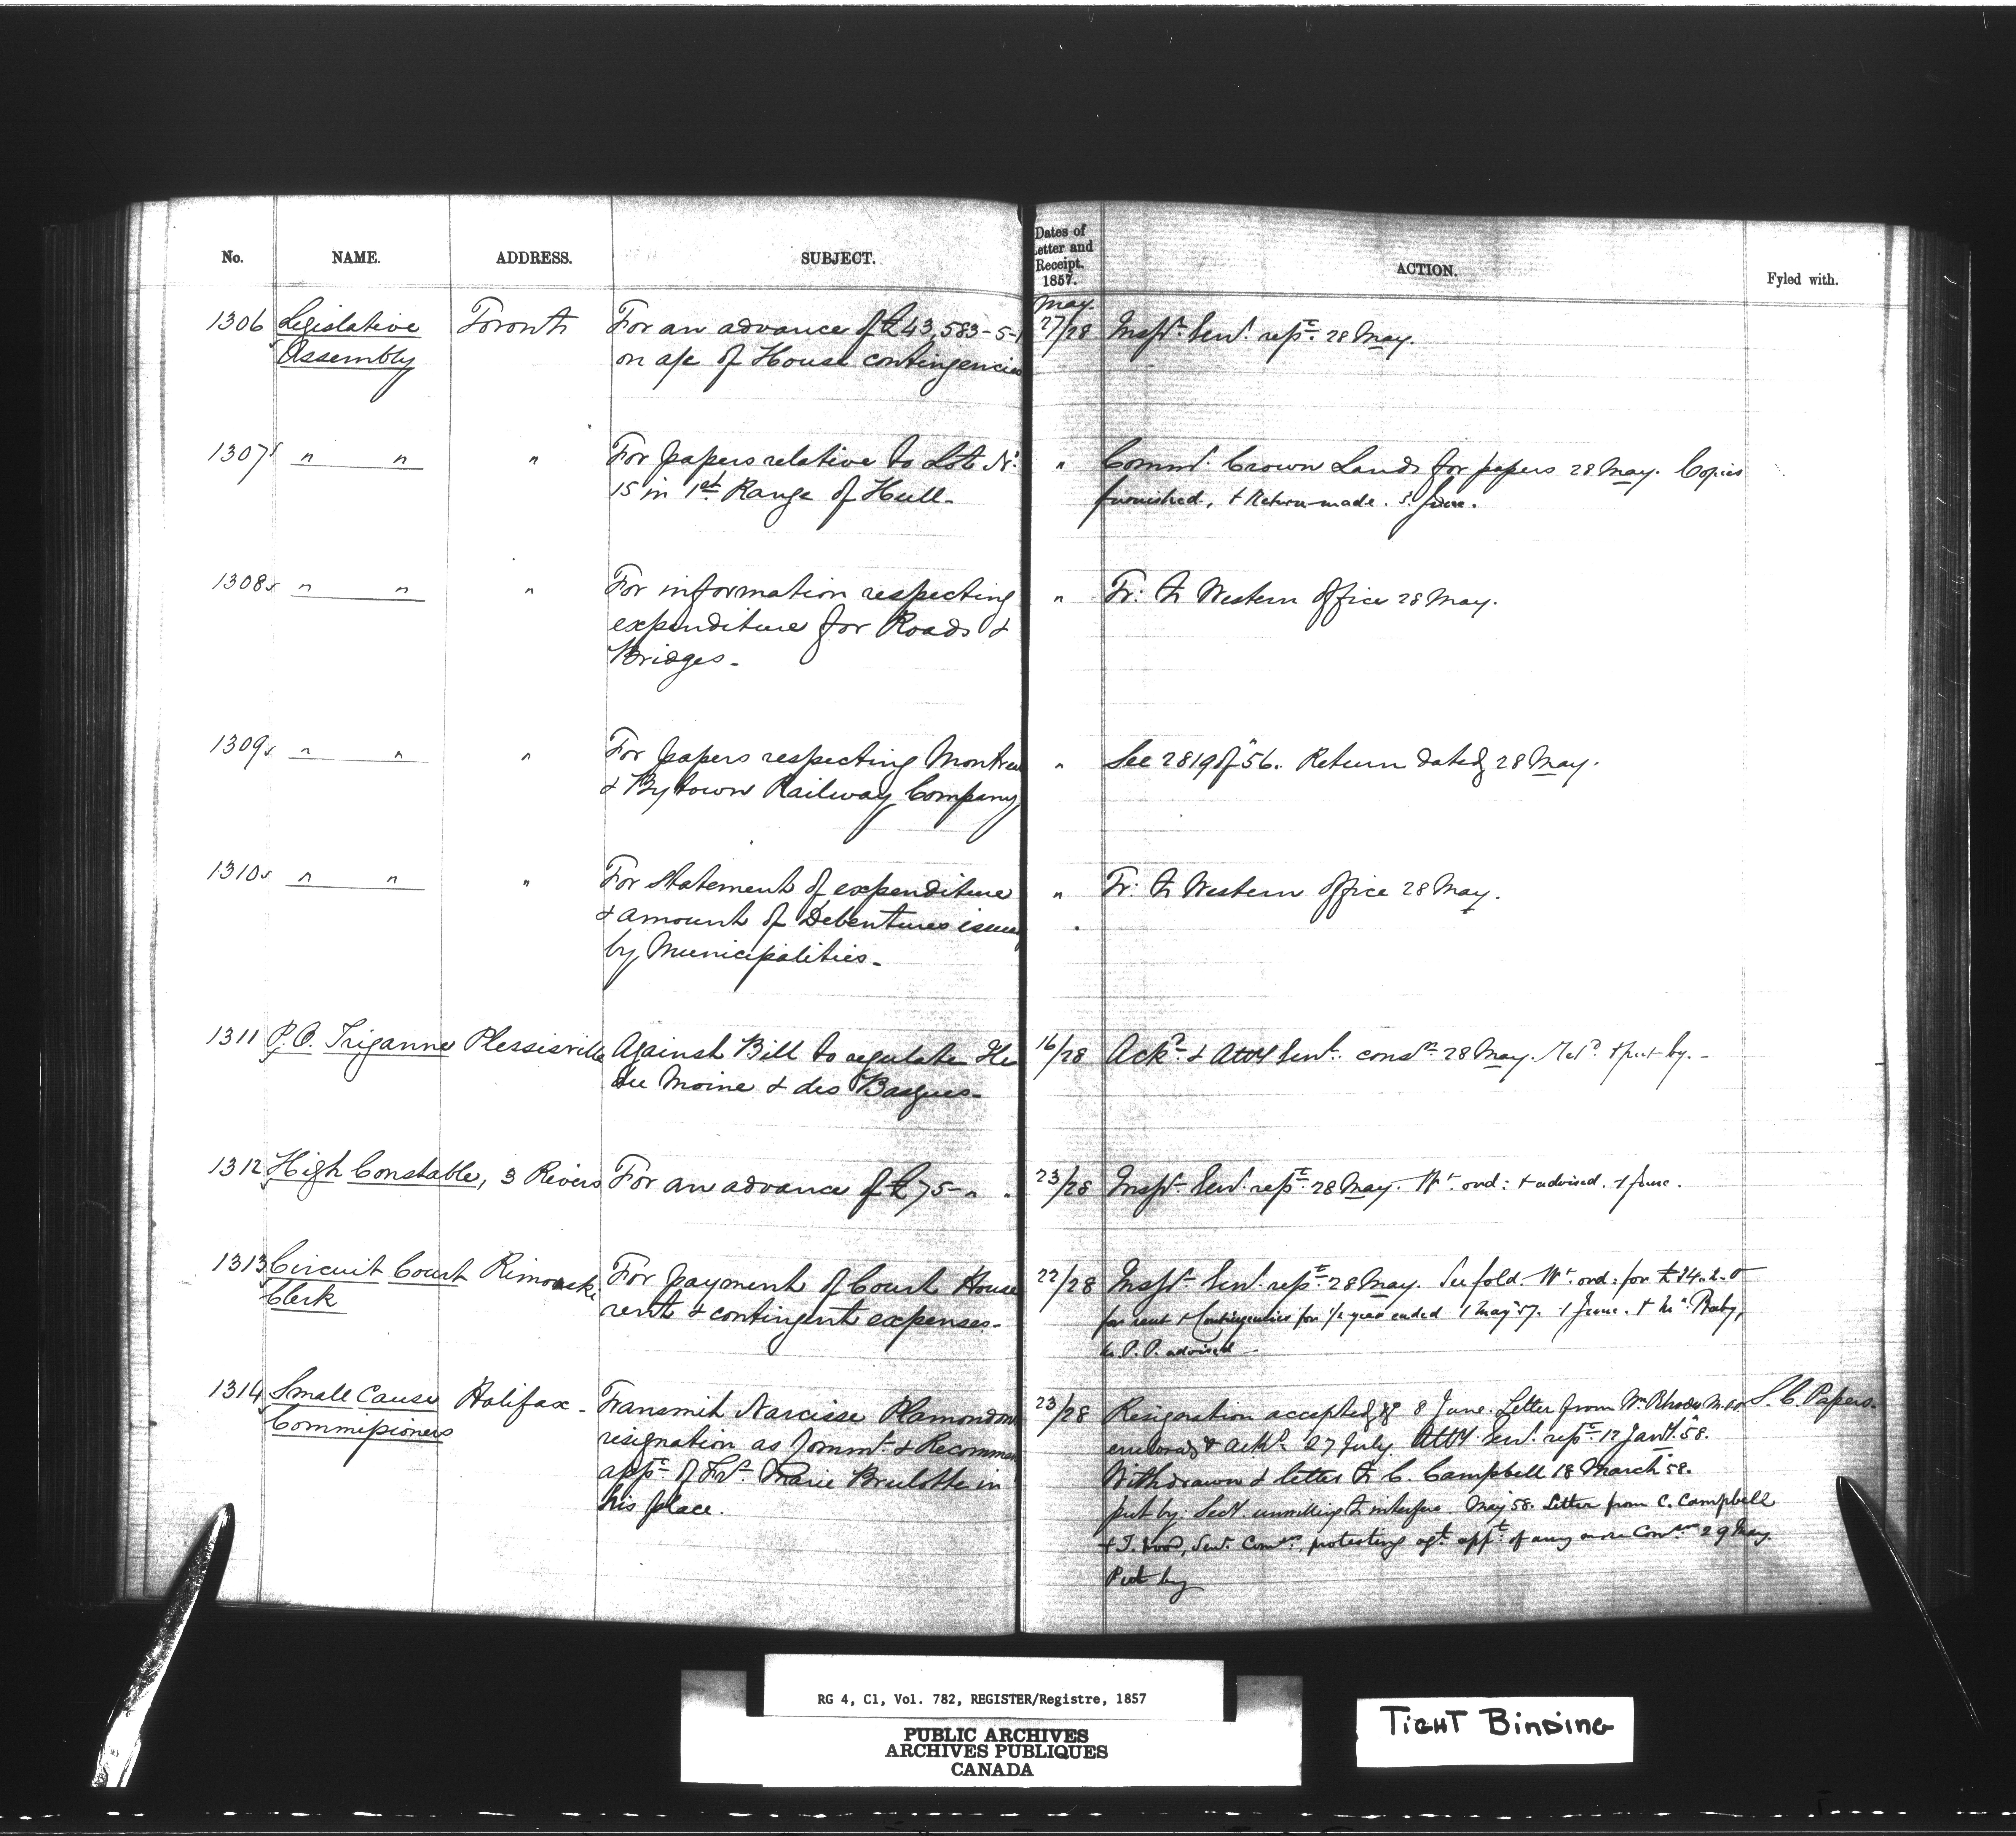 No. NAME. ADDRESS. SUBJECT. Dates of Letter and Receipt. 1857. ACTION. Fyled with.
May.
1306 Legislative Toronto For an advance of £43,583-5-1 27/28 Insp.r Genl. rept. 28 May.
Assembly on a/c of House contingencies
1307 " " " For papers relative to Lot No. " Commr. Crown Lands for papers 28 May. Copies
15 in 1st Range of Hull- furnished, & Return made. 3. June.
1308 " " " For information respecting " Tr: to Western Office 28 May.
expenditure for Roads &
Bridges-
1309 " " " For papers respecting Montreal " See 2819 of "56. Return dated 28 May.
& Bytown Railway Company
1310 " " " For Statement of expenditure " Tr: to Western Office 28 May.
& amount of Debentures issued
by Municipalities-
1311 P.O. Triganne Plessisville Against Bill to regulate 16/28 Ackd. & Atty Genl. 28 May. & put by.-
du Moine & des Basques-
1312 High Constable, 3 Rivers For an advance of £75-" " 23/28 Inspr. Genl. rept. 28 May. Wt. ord: & advised. 1 June.
1313 Circuit Court Rimouski For payment of Court House 22/28 Inspr. Genl. rept. 28 May. Wt. ord: for
Clerk rent & contingent expenses- for rent & Contingencies for 1/2 year ended 1 May 57. 1 June. & Mr. Baby,
M.P.P. advised-
1314 Small Cause Halifax- Transmit Narcisse Plamondon 23/28 Resignation accepted 8 June. Letter from Wm Rhodes S. C. Papers.
Commissioners resignation as Commr. & Recommend enclosed & ackd. 27 July. Atty. Genl. rept. 12 Jany. 58.
appt. of Frs. Marie Brulotte in Withdrawn & letter to C. Campbell 18 March 58.
his place. put by. unwilling to interfere May 58. Letter from C. Campbell
protesting agt. appt. of any more 29 May.
Put by
RG 4, C1, Vol. 782, REGISTER/Registre, 1857
PUBLIC ARCHIVES
ARCHIVES PUBLIQUES
CANADA
TIGHT BINDING